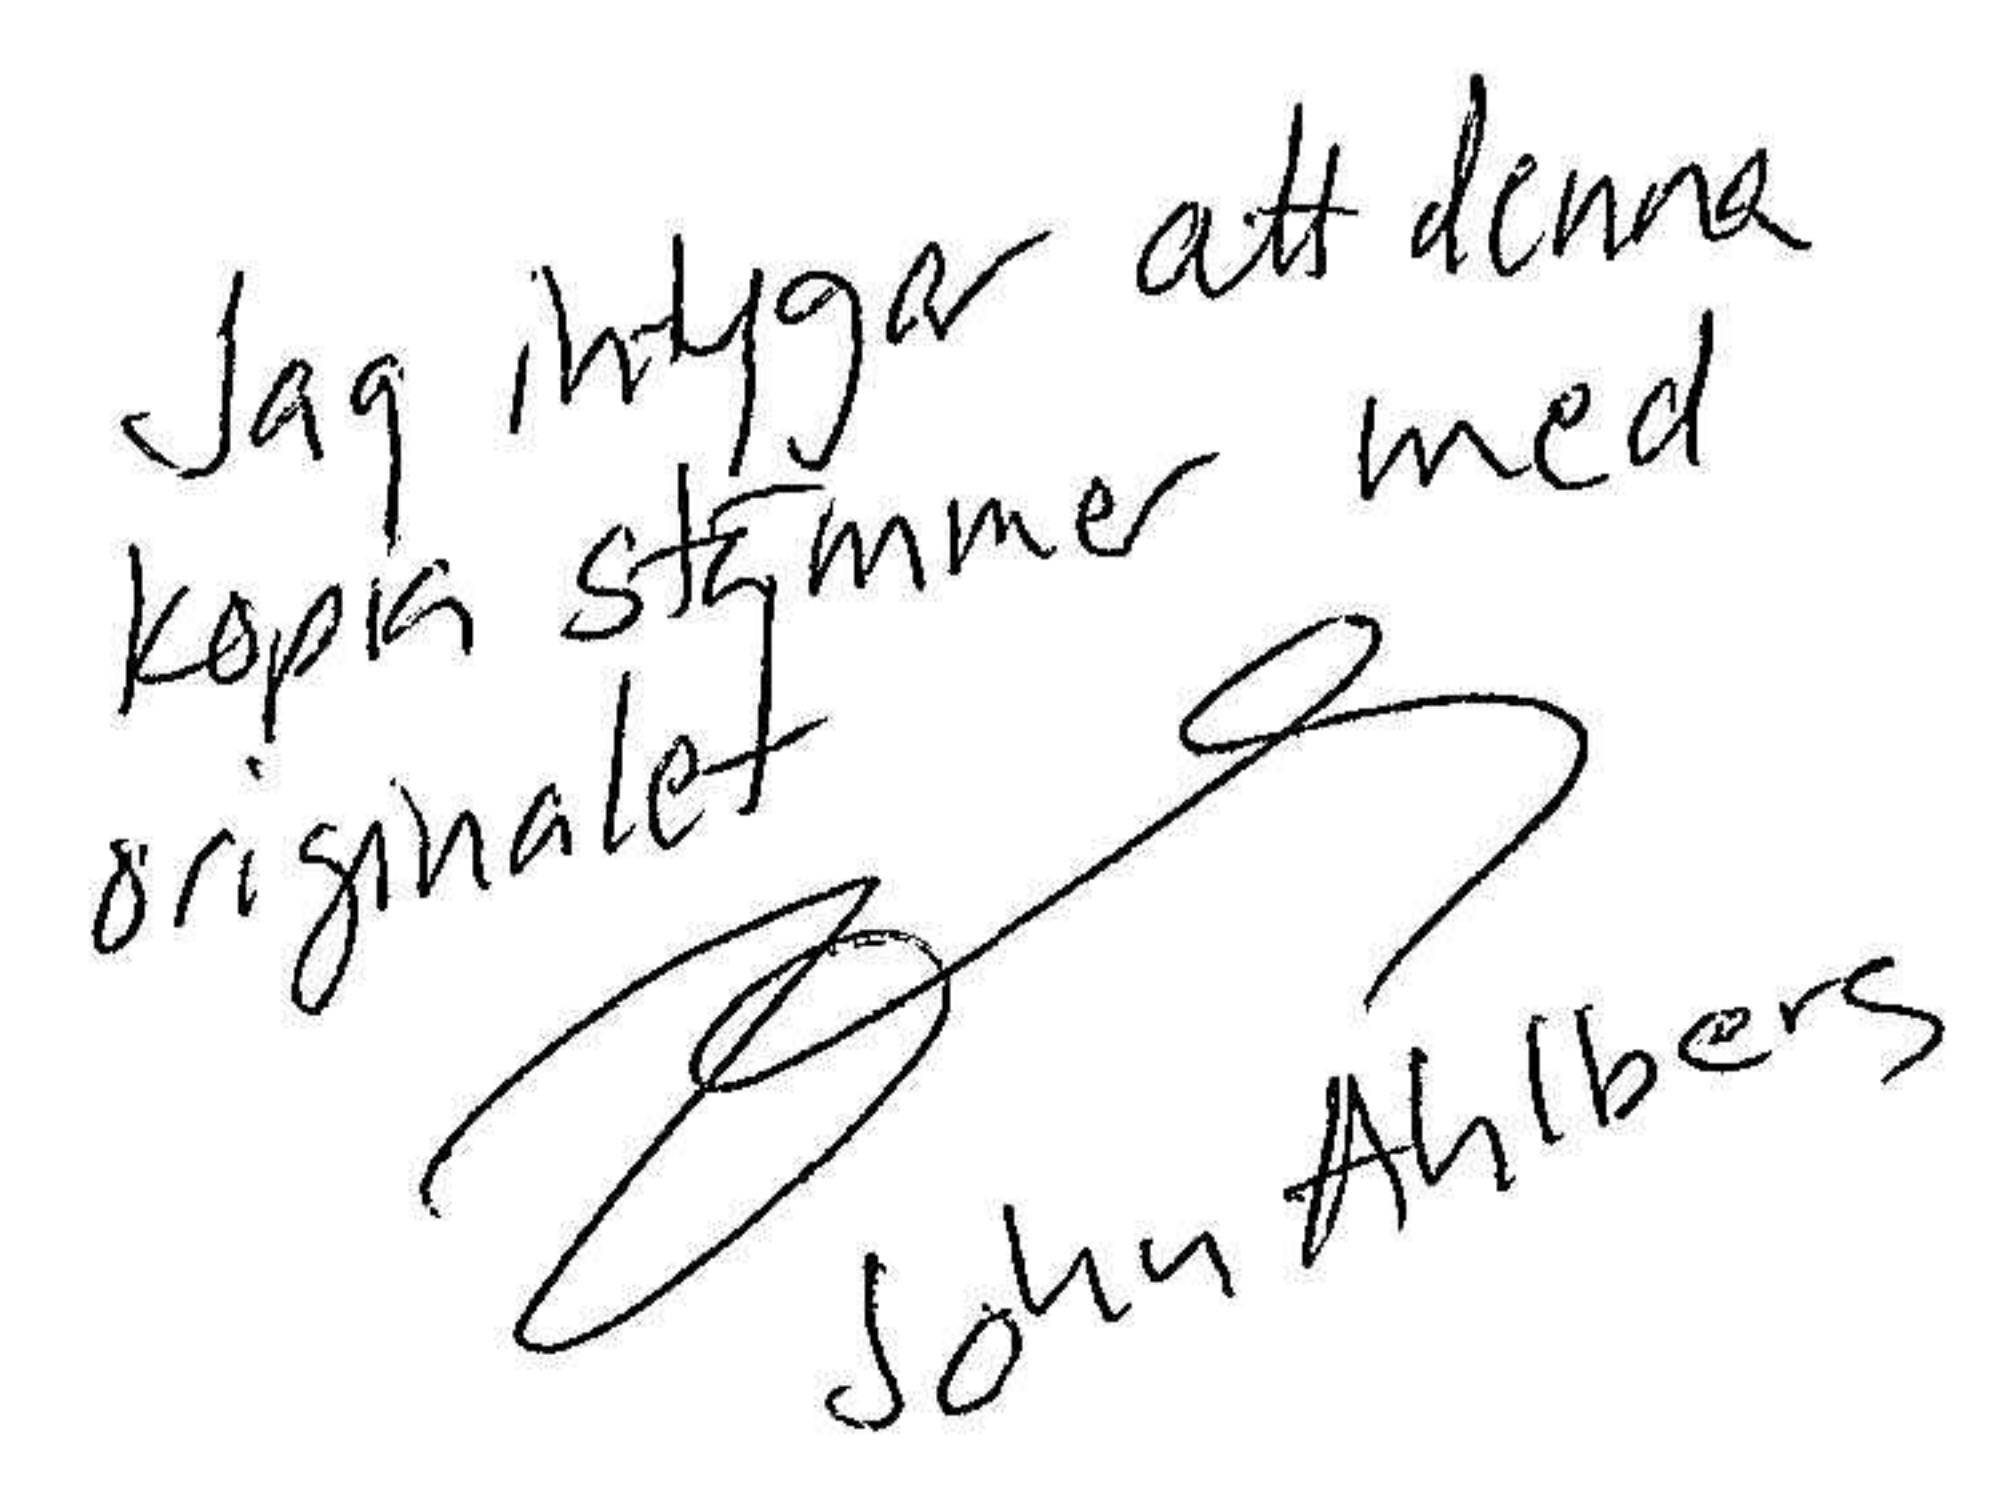 Jag intygar att denna
kopia stämmer med
originalet
John Ahlbers